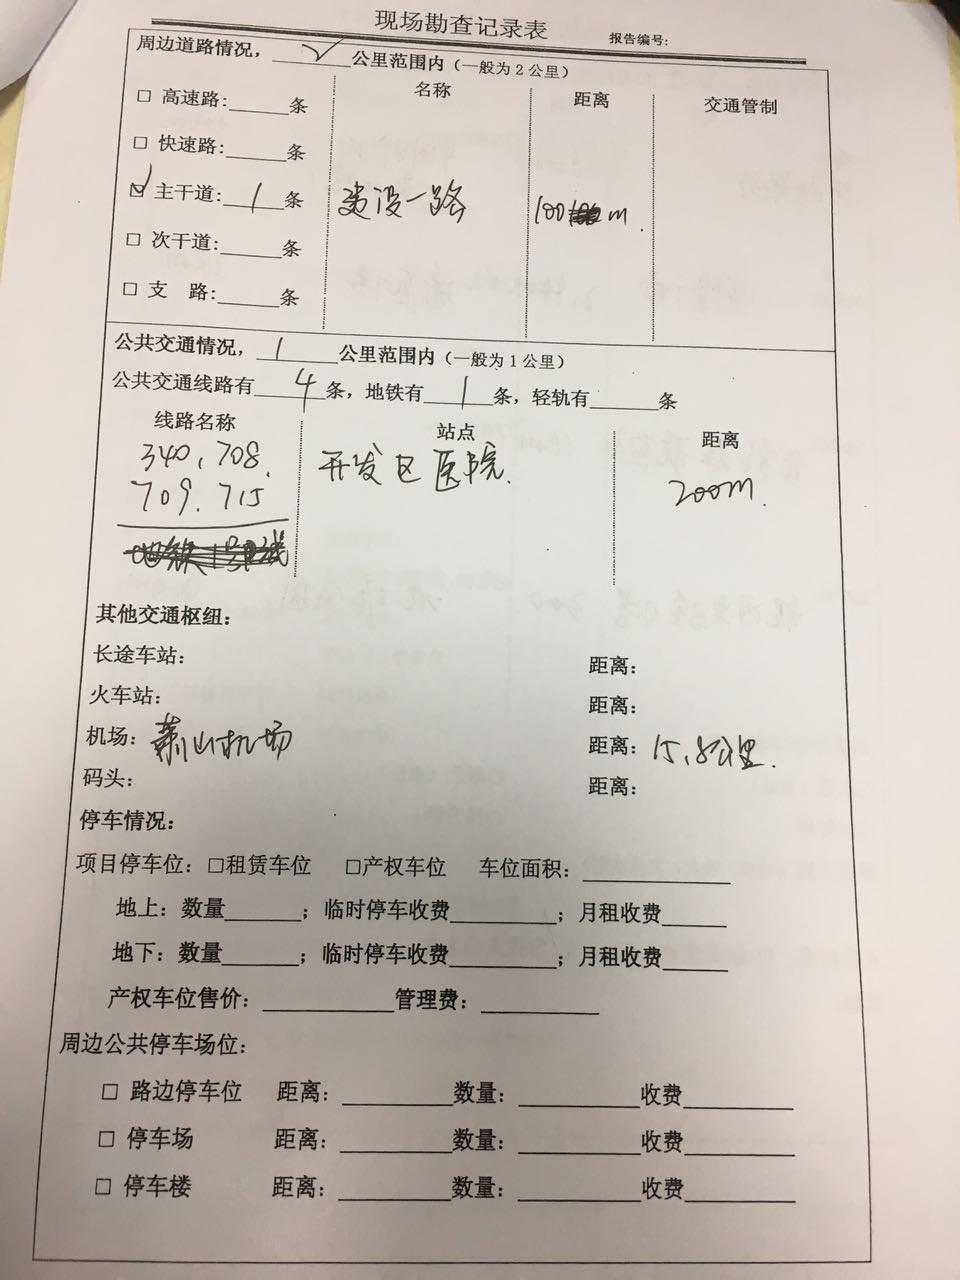 现场勘查记录表
报告编号:
周边道路情况，√公里范围内（一般为2公里）
名称 距离 交通管制
□ 高速路:______条
□ 快速路:______条
☑ 主干道:1条 建设一路 100m.
□ 次干道:______条
□ 支 路:______条
公共交通情况，1公里范围内（一般为1公里）
公共交通线路有4条，地铁有1条，轻轨有______条
线路名称 站点 距离
340、708、 开发区医院. 200m.
709、715
地铁1号线
其他交通枢纽：
长途车站： 距离：
火车站： 距离：
机场：萧山机场 距离：15.8公里.
码头： 距离：
停车情况：
项目停车位：□租赁车位 □产权车位 车位面积：______
地上：数量______；临时停车收费______；月租收费______
地下：数量______；临时停车收费______；月租收费______
产权车位售价：______管理费：______
周边公共停车场位：
□ 路边停车位 距离：______数量：______收费______
□ 停车场 距离：______数量：______收费______
□ 停车楼 距离：______数量：______收费______